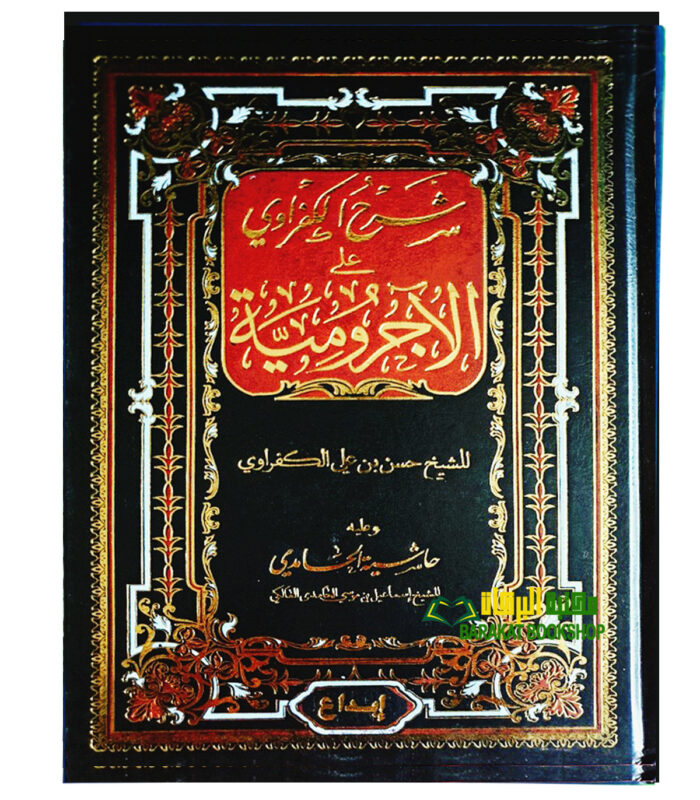 شرح الكفراوي
على
الآجرومية
للشيخ حسن بن علي الكفراوي
وعليه
حاشية الحامدي
للشيخ إسماعيل بن موسى الحامدي المالكي
مكتبة البركات
BARAKAT BOOKSHOP
إبداع